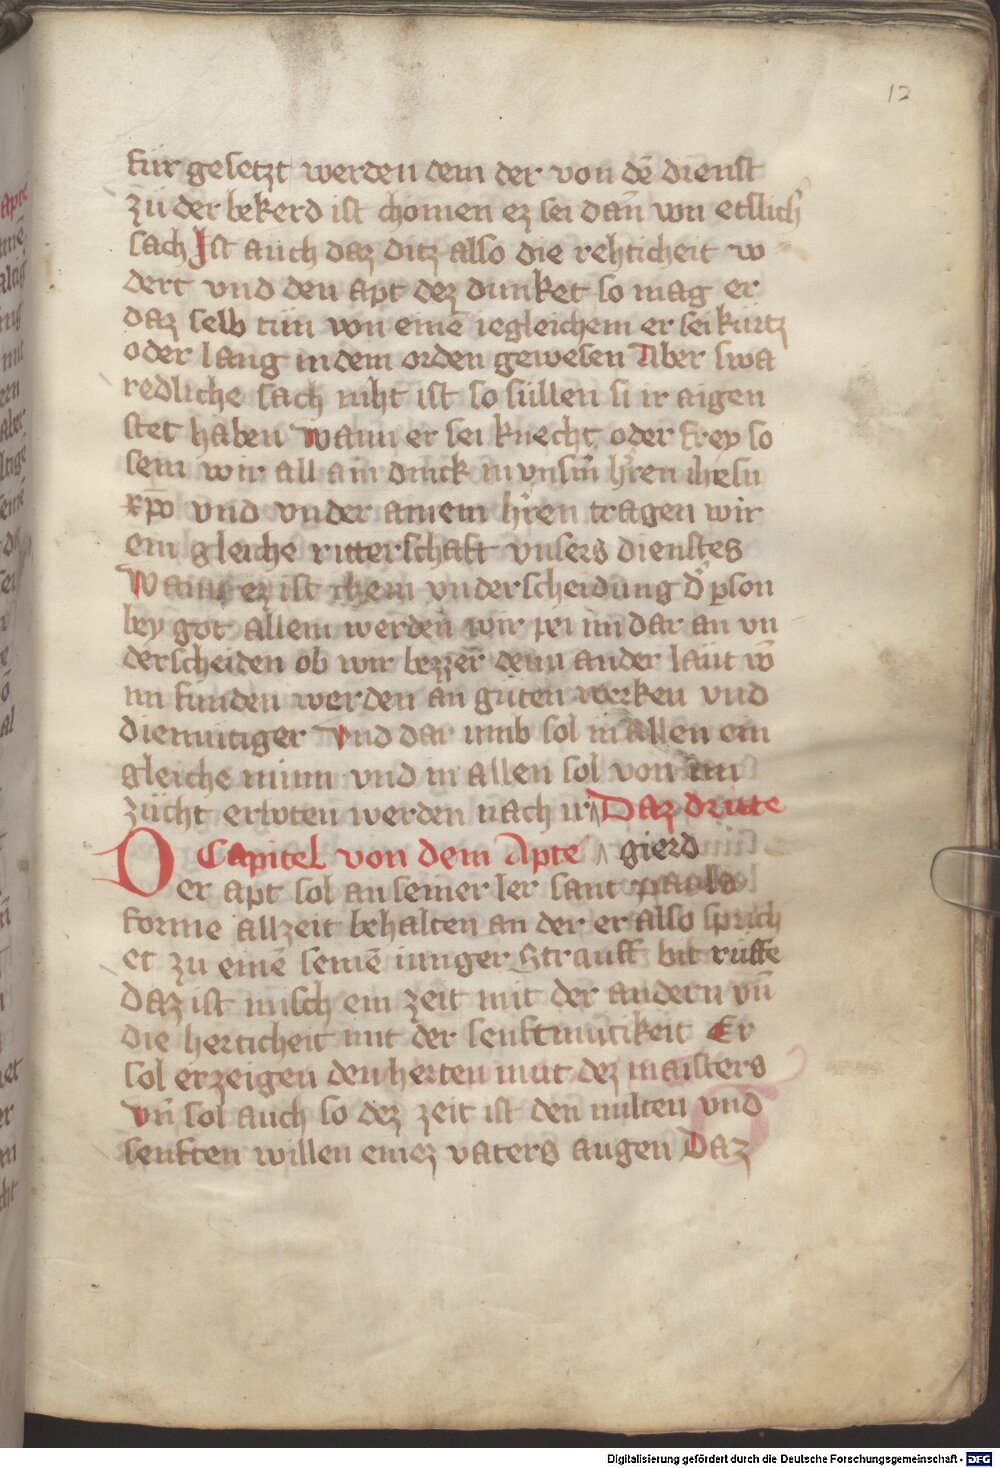 12
für gesetzt werden dem der von dē dienst
zů der bekerd ist chomen ez sei dan̄ von etslich̕
sach Ist auch daz ditz also die rehticheit w
dert vnd den apt dez dunket so mag er
daz selb tůn von einē iegleichem er sei kürtz
oder lang in dem orden gewesen Aber swa
redliche sach niht ist so süllen si ir aigen
stet haben Wann er sei knecht oder frey so
sein wir all ain dinck in vnsm̄ hr̄en ihesu
xp̄o vnd vnder ainem hr̄en tragen wir
ein gleiche ritterschaft vnsers dienstes
Wann ez ist chein vnderscheidung d̕ pson
bey got allein werden wir pei im dar an vn
derscheiden ob wir bezzer denn ander läut w̄
im funden werden an gůten werken vnd
diemütiger Vnd dar umb sol in allen ein
gleiche minn vnd in allen sol von im
zücht erboten werden nach ir Daz dritte
Capitel von dem Apte gierd
Der apt sol an seiner ler sant pauls
forme allzeit behalten an der er also sprich
et zu einē seinē iunger Strauff bit ruffe
Daz ist misch ein zeit mit der andern vn̄
die herticheit mit der senftmütikeit Er
sol erzeigen den herten mut dez maisters
Vn̄ sol auch so dez zeit ist den milten vnd
senften willen einez vaters augen Daz
Digitalisierung gefördert durch die Deutsche Forschungsgemeinschaft - DFG